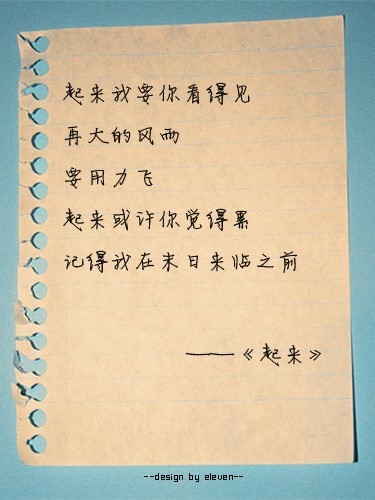 起来我要你看得见
再大的风雨
要用力飞
起来或许你觉得累
记得我在末日来临之前
——《起来》
--design by eleven--